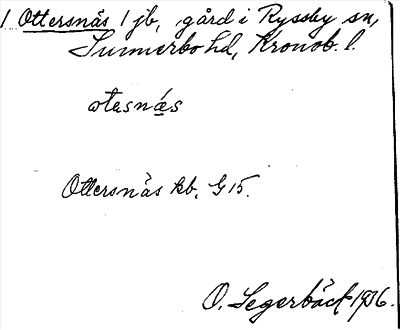 1 Ottersnäs 1 jb, gård i Ryssby sn,
Sunnerbo hd, Kronob. l.
Ottersnäs kb. G 15.
O. Segerbäck 1936.